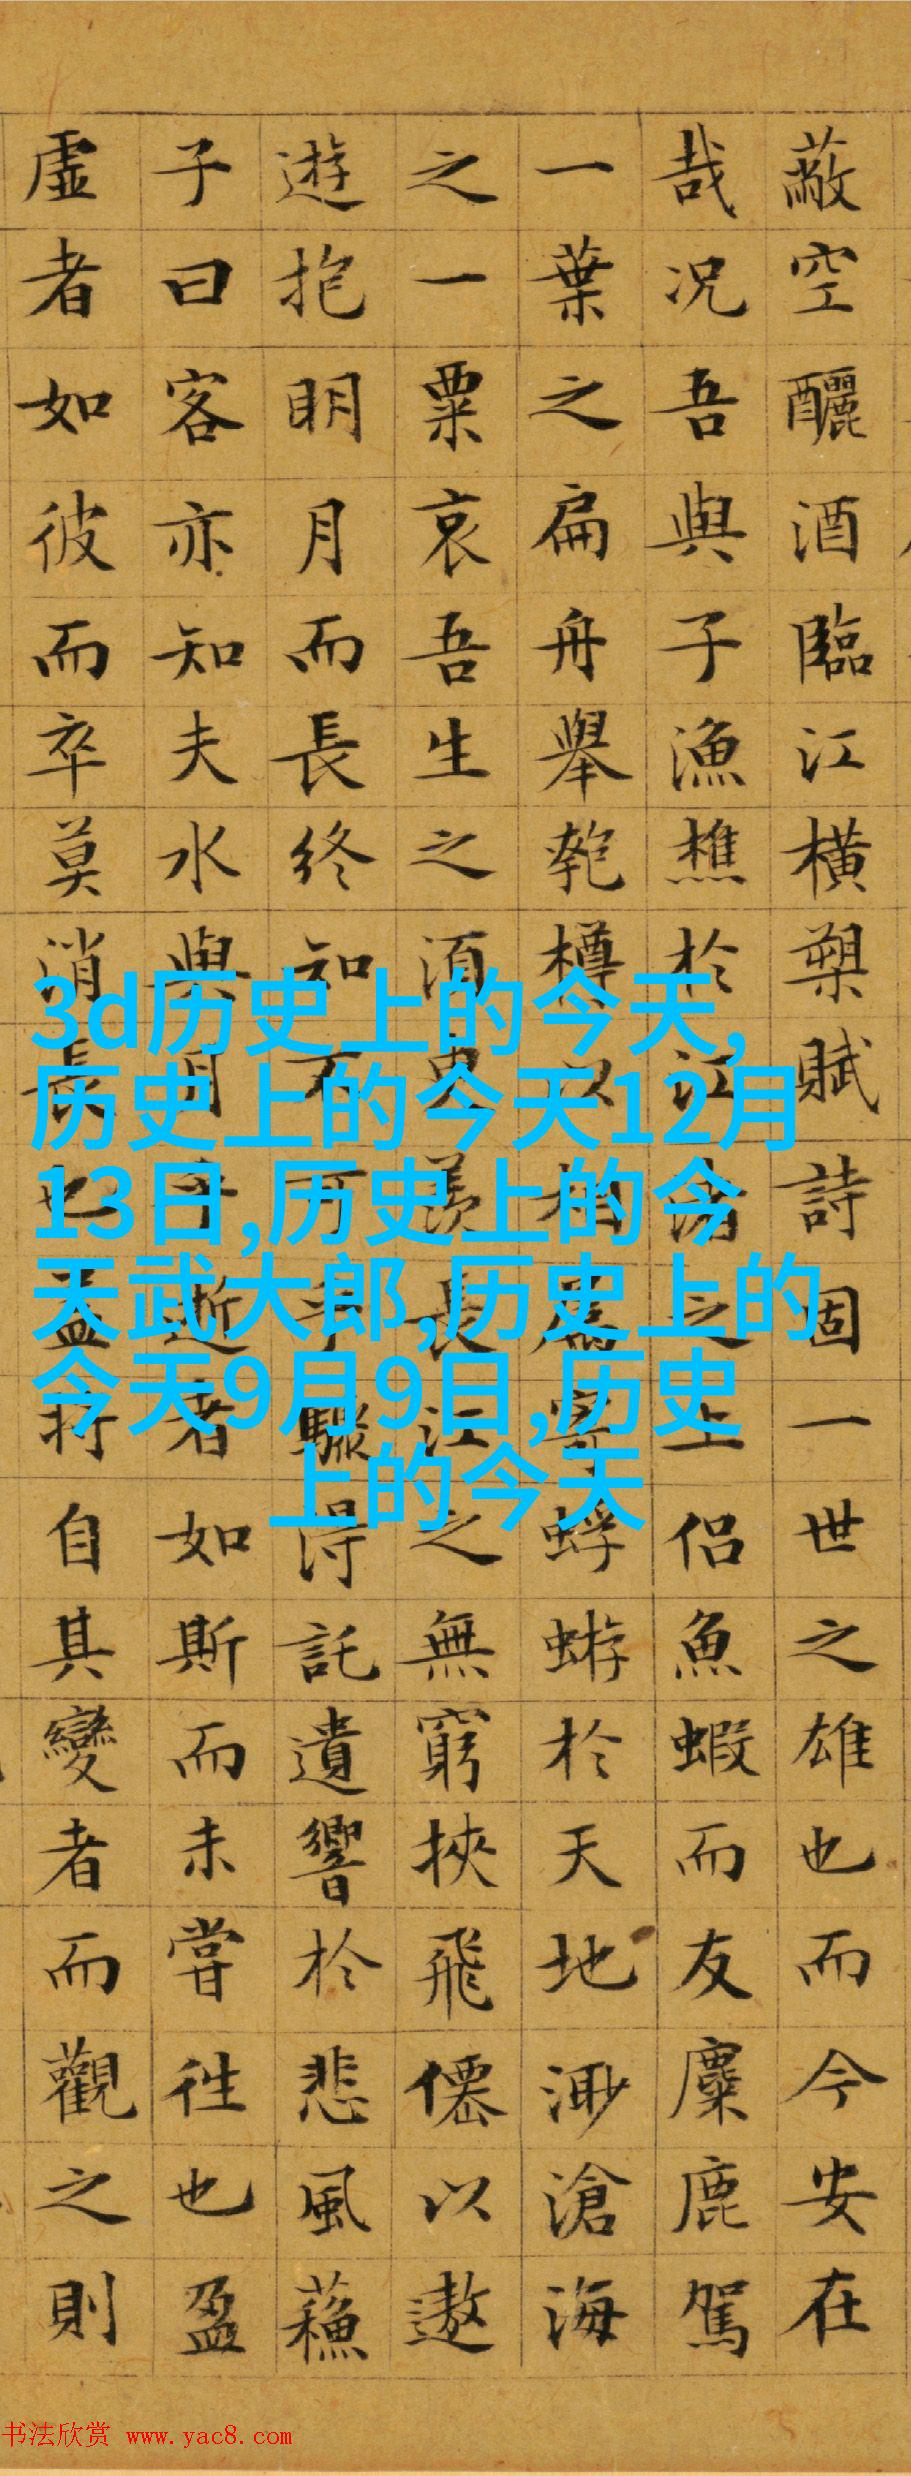 蔽空釃酒臨江橫槊賦詩固一世之雄也而今安在
哉况吾與子漁樵於江渚之上侣魚蝦而友麋鹿駕
一葉之扁舟舉匏樽以相屬寄蜉蝣於天地渺滄海
之一粟哀吾生之須臾羨長江之無窮挾飛僊以遨
遊抱明月而長終知不可乎驟得託遺響於悲風蘓
子曰客亦知夫水與月乎逝者如斯而未嘗往也盈
虛者如彼而卒莫消長也盖将自其變者而觀之則
3d历史上的今天,
历史上的今天12月
13日,历史上的今
天武大郎,历史上的
今天9月9日,历史
上的今天
书法欣赏 www.yac8.com